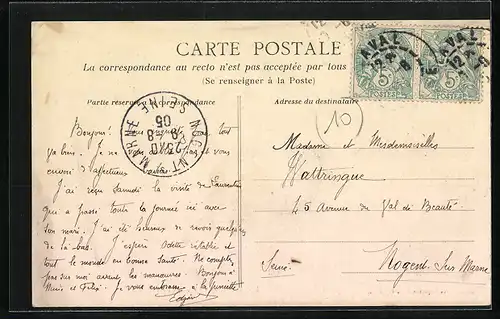 CARTE POSTALE
La correspondance au recto n'est pas acceptée par tous
(Se renseigner à la Poste)
Partie réservée à la correspondance
Adresse du destinataire
LAVAL
12
LAVAL
12
5c
5c
POSTES
POSTES
NOGENT S SEINE MARNE
8-8
05
10
Bonjour! tout
va bien. Je ne pas et vous
envoie d'affectueux
J'ai reçu samedi la visite de Laurentine
qui a passé toute la journée ici avec
son mari. J'ai été heureux de revoir quelqu'un
de là bas. J'espère Odette rétablie et
tout le monde en bonne santé. Ne comptez
pas sur moi avant les manœuvres. Bonjour à
et Félix. Je vous embrasse à la
Madame et Mesdemoiselles
Wattringue
45 Avenue du Val de Beauté
Nogent Sur Marne
Seine